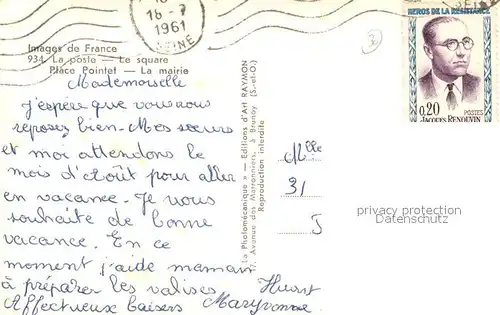 18 -7
1961
SEINE
HEROS DE LA RESISTANCE
0,20
POSTES
JACQUES RENOUVIN
Images de France
934 La poste — Le square
Place Pointet — La mairie
Mademoiselle
j'espère que vous vous
reposez bien. Mes sœurs
et moi attendons le
mois d'Août pour aller
en vacance. Je vous
souhaite de bonne
vacance. En ce
moment j'aide maman
à préparer les valises.
Affectueux baisers Maryvonne
Huart
La Photomécanique » — Editions d'Art RAYMON
17, Avenue des Marronniers, à Brunoy (S.-et-O.)
Reproduction interdite
Mlle
31
J
privacy protection
Datenschutz